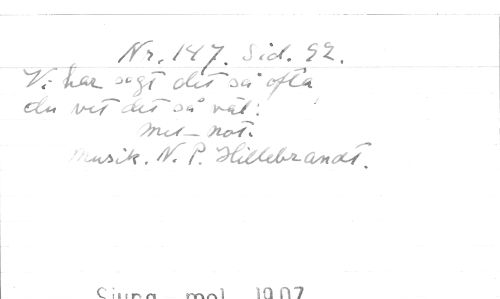 Nr. 147. Sid. 92.
Vi har sagt det så ofta
du vet det så väl:
mel-not.
Musik. N. P. Hillebrandt.
Sjung - mol 1907